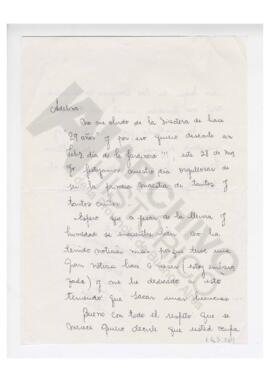 Adelina:
No me olvido de la Directora de hace
29 años y por eso quiero desearle un
feliz día de la Jardinera!!!, este 28 de May
festejamos nuestro día orgullosas de
ser la primera maestra de tantos y
tantos niños.
Espero que a pesar de la lluvia y
humedad se encuentre bien. No ha
tenido noticias mías porque tuve una
gran noticia hace 6 meses (estoy embara
zada) y me he dedicado
teniendo que sacar unas licencias...
Bueno con todo el respeto que se
merece quiero decirle que usted ocupa
ARCHIVO